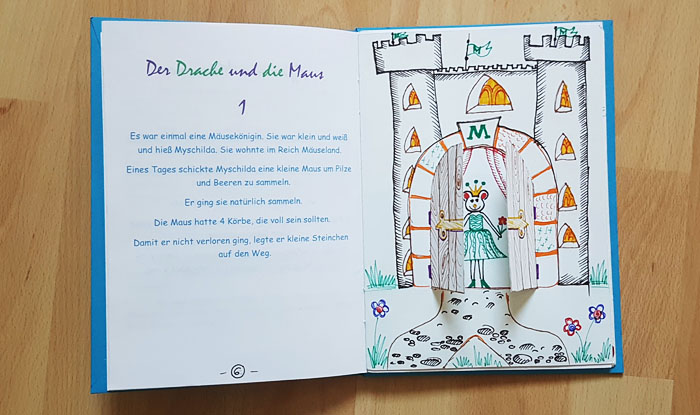 Der Drache und die Maus
1
Es war einmal eine Mäusekönigin. Sie war klein und weiß
und hieß Myschilda. Sie wohnte im Reich Mäuseland.
Eines Tages schickte Myschilda eine kleine Maus um Pilze
und Beeren zu sammeln.
Er ging sie natürlich sammeln.
Die Maus hatte 4 Körbe, die voll sein sollten.
Damit er nicht verloren ging, legte er kleine Steinchen
auf den Weg.
- 6 -
M